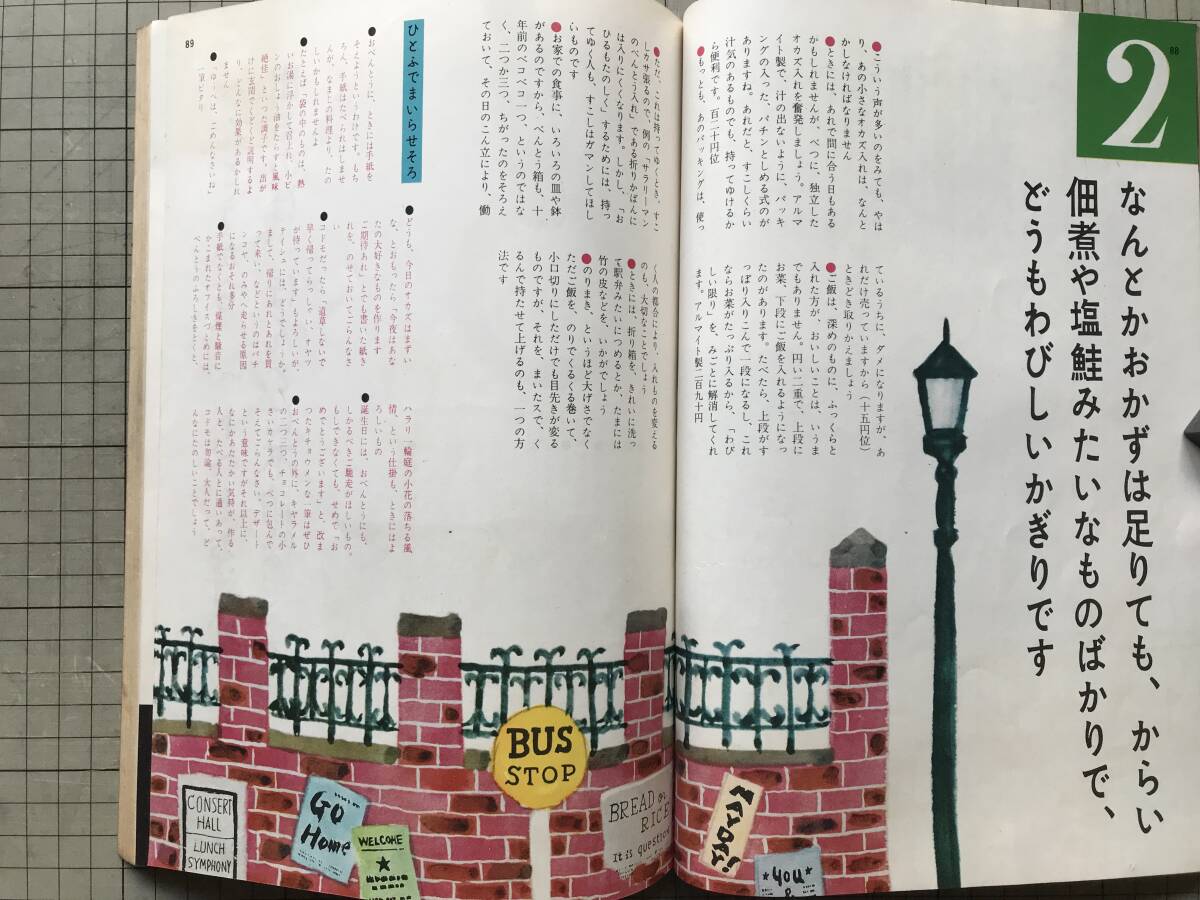 88
2
なんとかおかずは足りても、からい
佃煮や塩鮭みたいなものばかりで、
どうもわびしいかぎりです
●こういう声が多いのをみても、やは
り、あの小さなオカズ入れは、なんと
かしなければなりません
●ときには、あれで間に合う日もある
かもしれませんが、べつに、独立した
オカズ入れを奮発しましょう。アルマ
イト製で、汁の出ないように、パッキ
ングの入った、パチンとしめる式のが
ありますね。あれだと、すこしくらい
汁気のあるものでも、持ってゆけるか
ら便利です。百二十円位
●もっとも、あのパッキングは、使っ
ているうちに、ダメになりますが、あ
れだけ売っていますから(十五円位)
ときどき取りかえましょう
●ご飯は、深めのものに、ふっくらと
入れた方が、おいしいことは、いうま
でもありません。円い二重で、上段に
お菜、下段にご飯を入れるようになっ
たのがあります。たべたら、上段がす
っぽり入りこんで一段になるし、これ
ならお菜がたっぷり入るから、「わび
しい限り」を、みごとに解消してくれ
ます。アルマイト製二百九十円
●ただ、これは持ってゆくとき、すこ
しカサ張るので、例の「サラリーマン
のべんとう入れ」である折りかばんに
は入りにくくなります。しかし、「お
ひるもたのしく」するためには、持っ
てゆく人も、すこしはガマンしてほし
いものです
●お家での食事に、いろいろの皿や鉢
があるのですから、べんとう箱も、十
年前のベコベコ一つ、というのではな
く、二つか三つ、ちがったのをそろえ
ておいて、その日のこん立により、働
く人の都合により、入れものを変える
のも、大切なことでしょう
●ときには、折り箱を、きれいに洗っ
て駅弁みたいにつめるとか、たまには
竹の皮などを、いかがでしょう
●のりまき、というほど大げさでなく
ただご飯を、のりでくるくる巻いて、
小口切りにしただけでも目先きが変る
ものですが、それを、まいたスで、く
るんで持たせて上げるのも、一つの方
法です
ひとふでまいらせそろ
●おべんとうに、ときには手紙を
そえようというわけです。もち
ろん、手紙はたべられはしませ
んが、なまじの料理より、たの
しいかもしれませんよ
●たとえば「袋の中のものは、熱
いお湯に浮かして召上れ、小ビ
ンのおしょう油をたらすと風味
絶佳」といった調子です。出が
けに玄関で、くどくど説明するよ
り、どんなに効果があるかしれ
ません
●「ゆうべは、ごめんなさいね」
一筆ピタリ
●どうも、今日のオカズはまずい
な、とおもったら「今夜はあな
たの大好きなものを作ります
ご期待あれ」とでも書いた紙き
れを、のせておいてごらんなさ
い
●コドモだったら「道草しないで
早く帰ってらっしゃい、オヤツ
が待っています」もよろしいが、
テイシュには、どうでしょうか。
まして、帰りにあれとあれを買
って来い、などというのはパチ
ンコや、のみやへ走らせる原因
になるおそれ多分
●手紙でなくとも、煤煙と騒音に
かこまれたオフィスづとめには、
べんとうのふろしきをとくと、
ハラリ一輪庭の小花の落ちる風
情、という仕掛も、ときにはよ
ろしいもの
●誕生日には、おべんとうにも、
しかるべきご馳走がほしいもの。
もしできなくても、せめて、「お
めでとうございます」と、改ま
ったキチョウメンな一筆はぜひ
●おべんとうの外に、キャラメル
の二つ三つ、チョコレートの小
さいカケラでも、べつに包んで
そえてごらんなさい。デザート
という意味ですがそれ以上に、
なにかあたたかい気持が、作る
人と、たべる人とに通いあって、
コドモは勿論、大人だって、ど
んなにたのしいことでしょう
89
CONSERT
HALL
LUNCH
SYMPHONY
Go
Home
WELCOME
BUS
STOP
BREAD or
RICE
It is question
MAY DAY!
YOU
&